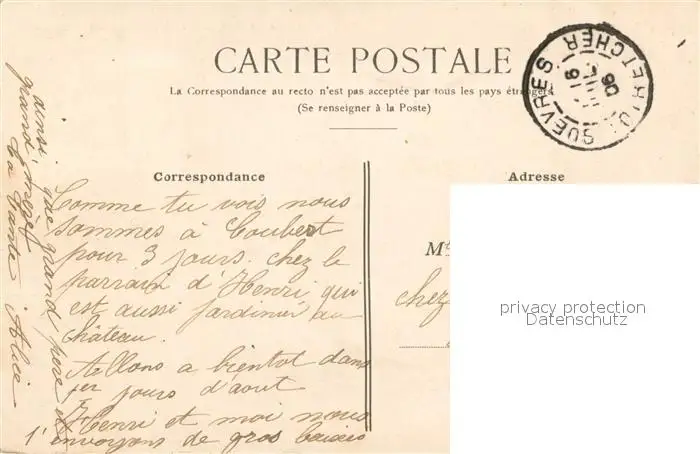 CARTE POSTALE
La Correspondance au recto n'est pas acceptée par tous les pays étrangers
(Se renseigner à la Poste)
SUEVRES
LOIR-ET-CHER
06
Correspondance
Adresse
Comme tu vois nous
sommes à Coubert
pour 3 jours. chez le
parrain d'Henri, qui
est aussi jardinier au
château.
Allons a bientot dans
1er jours d'aout
Henri et moi nous
t'envoyons de gros baisers
ainsi que grand père et
grand'mère
ta tante Alice
M
chez
privacy protection
Datenschutz